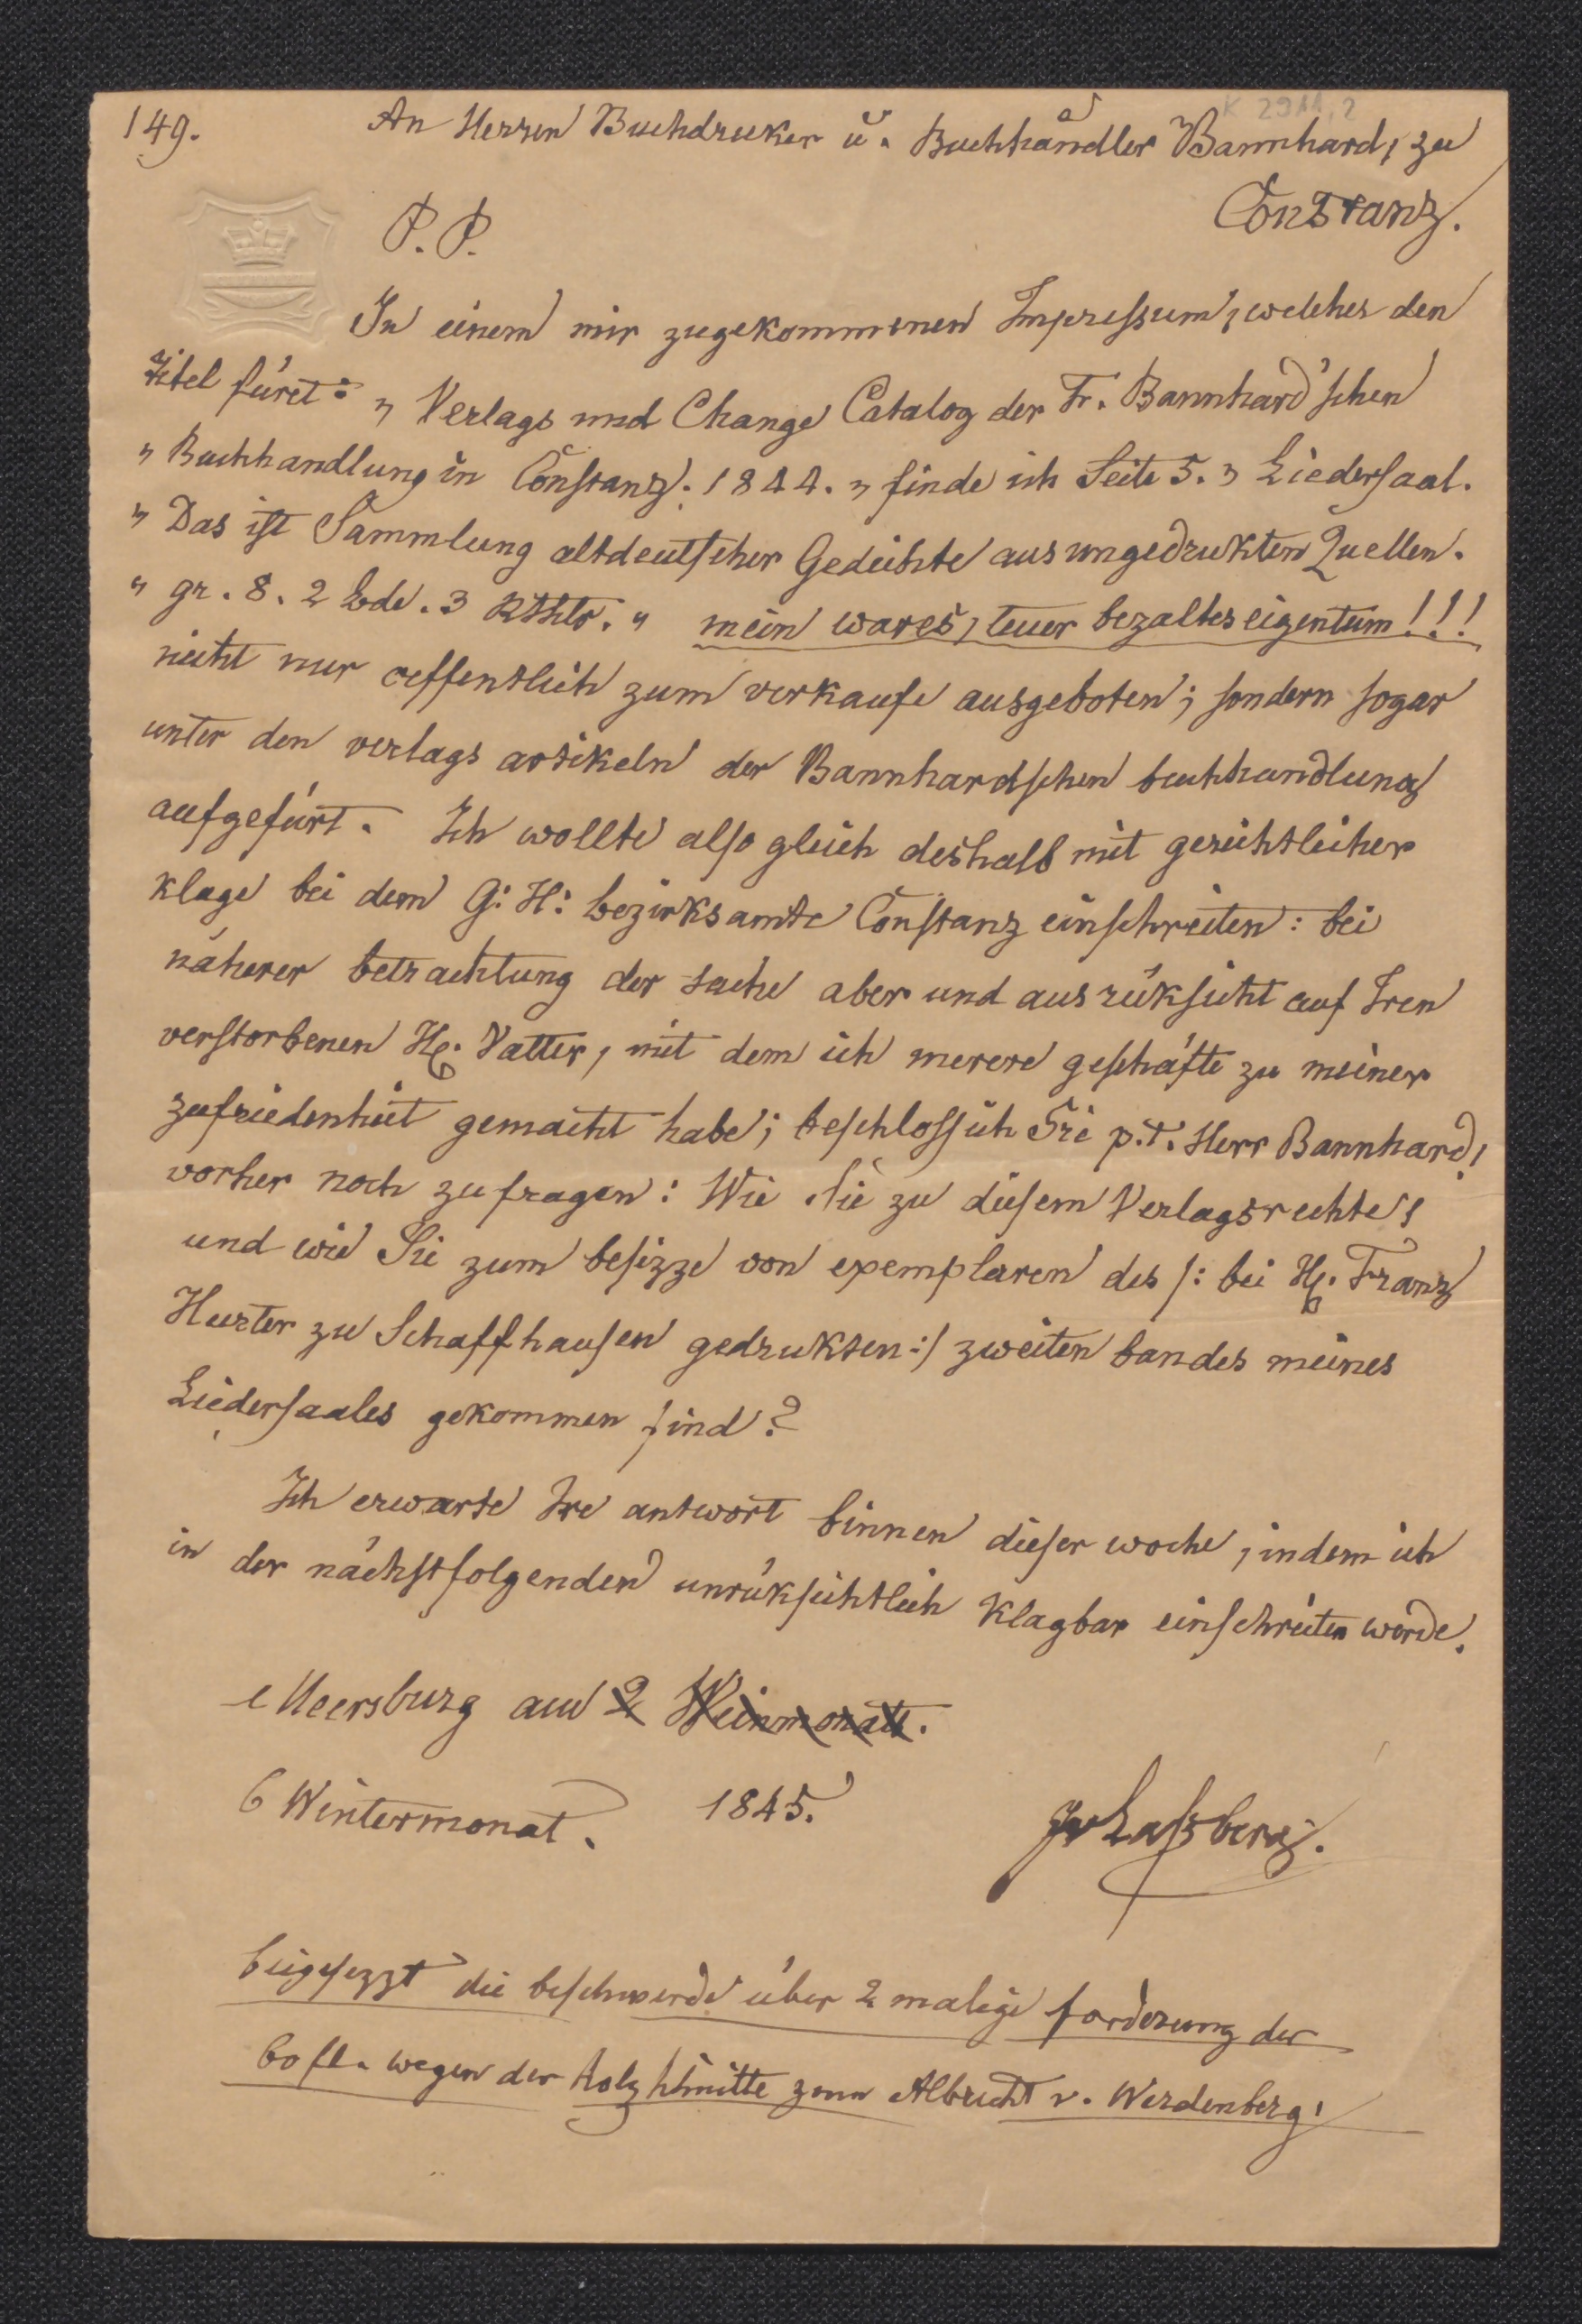 K 2911,2
149. An Herren Buchdruker u. Buchhändler Bannhard, zu
Constanz.
P. P.
In einem mir zugekommenen Impressum, welches den
titel füret: „ Verlags und Change Catalog der Fr. Bannhard'schen
„ Buchhandlung in Constanz. 1844. „ finde ich Seite 5. „ Liedersaal.
„ Das ist Sammlung altdeutscher Gedichte aus ungedrukten Quellen.
„ gr. 8. 2 Bde. 3 Rthlr. „ mein wares, teuer bezaltes eigentum!!!
nicht nur oeffentlich zum verkaufe ausgeboten; sondern sogar
unter den verlags artikeln der Bannhardschen buchhandlung
aufgefürt. Ich wollte also gleich deshalb mit gerichtlicher
klage bei dem G: H: bezirksamte Constanz einschreiten: bei
näherer betrachtung der sache aber und aus rüksicht auf Iren
verstorbenen H. Vatter, mit dem ich merere geschäfte zu meiner
zufriedenheit gemacht habe; beschloss ich Sie p. t. Herr Bannhard!
vorher noch zu fragen: Wie Sie zu diesem Verlagsrechte,
und wie Sie zum besizze von exemplaren des /: bei H. Franz
Hurter zu Schaffhausen gedrukten :/ zweiten bandes meines
Liedersaales gekommen sind?
Ich erwarte Ire antwort binnen dieser woche, indem ich
in der nächstfolgenden unrüksichtlich klagbar einschreiten werde.
Meersburg am 2 Weinmonats.
6 Wintermonat. 1845.
JvLaßberg.
beigesezzt die beschwerde über 2 malige forderung der
60 fl. wegen der holzschnitte zum Albrecht v. Werdenberg!